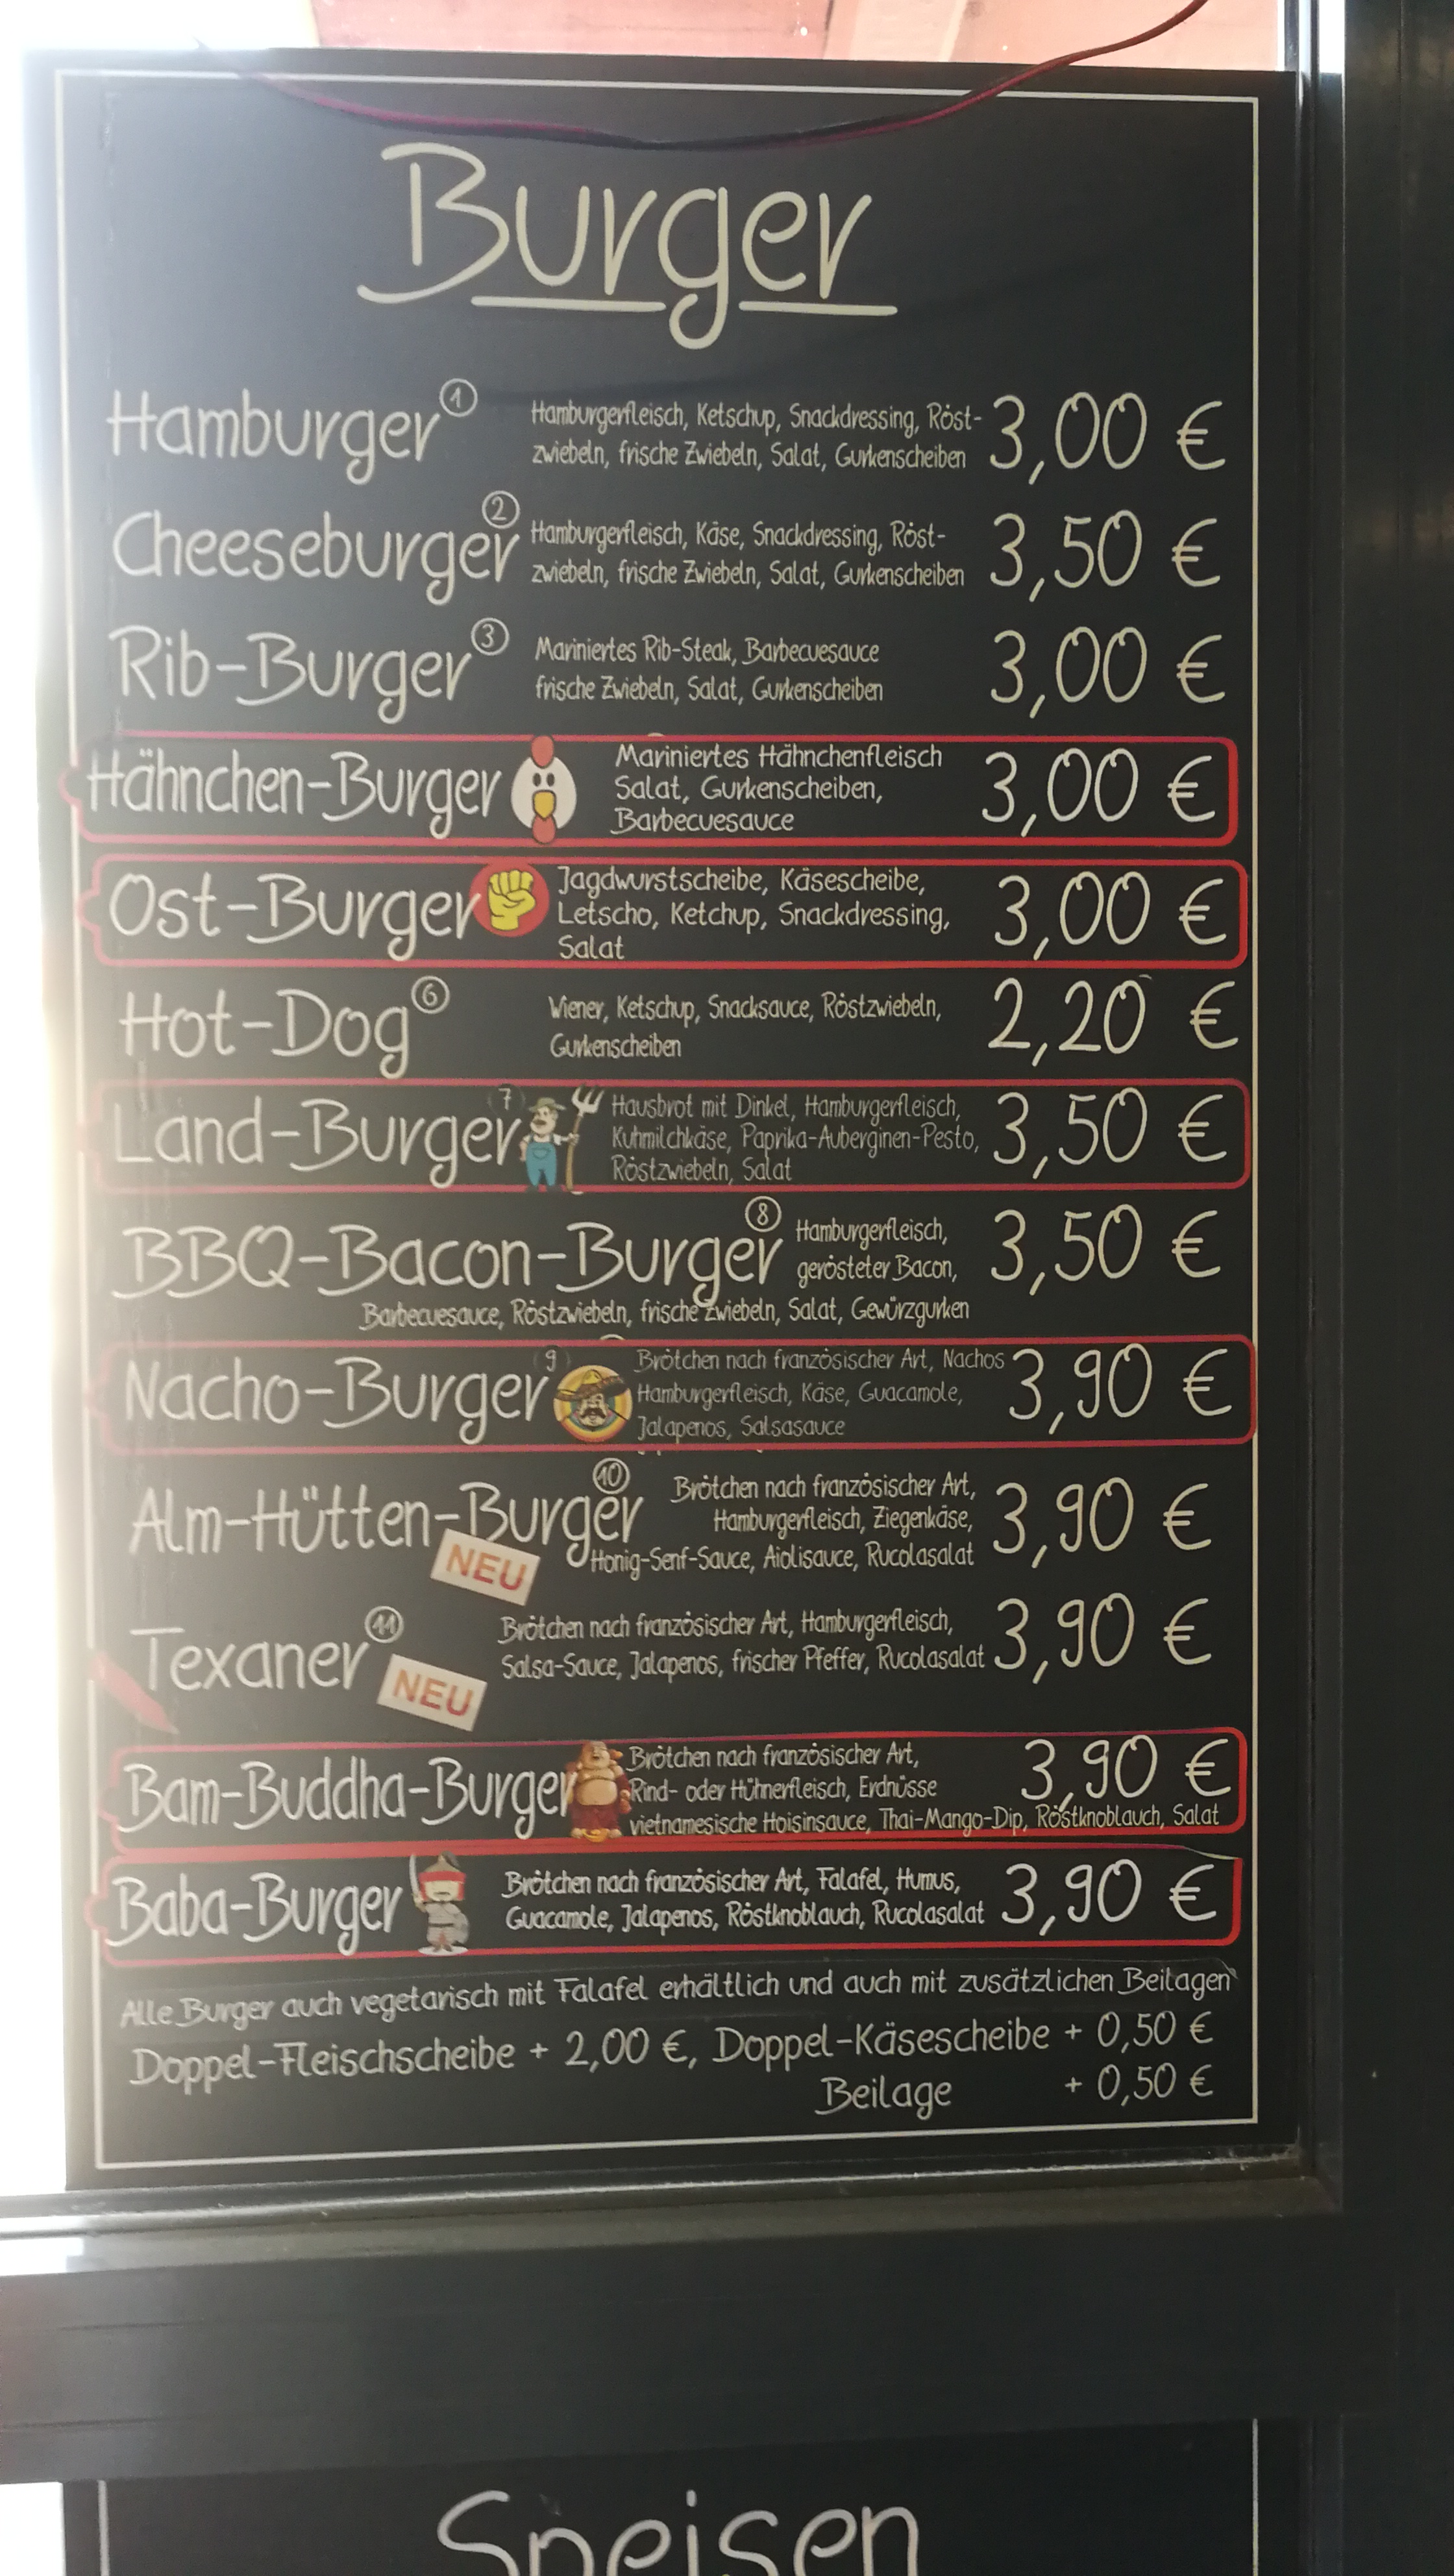 Burger
Hamburger 1 Hamburgerfleisch, Ketschup, Snackdressing, Röst- 3,00 €
zwiebeln, frische Zwiebeln, Salat, Gurkenscheiben
Cheeseburger 2 Hamburgerfleisch, Käse, Snackdressing, Röst- 3,50 €
zwiebeln, frische Zwiebeln, Salat, Gurkenscheiben
Rib-Burger 3 Mariniertes Rib-Steak, Barbecuesauce 3,00 €
frische Zwiebeln, Salat, Gurkenscheiben
Hähnchen-Burger Mariniertes Hähnchenfleisch 3,00 €
Salat, Gurkenscheiben,
Barbecuesauce
Ost-Burger Jagdwurstscheibe, Käsescheibe, 3,00 €
Letscho, Ketchup, Snackdressing,
Salat
Hot-Dog 6 Wiener, Ketschup, Snacksauce, Röstzwiebeln, 2,20 €
Gurkenscheiben
Land-Burger 7 Hausbrot mit Dinkel, Hamburgerfleisch, 3,50 €
Kuhmilchkäse, Paprika-Auberginen-Pesto,
Röstzwiebeln, Salat
BBQ-Bacon-Burger 8 Hamburgerfleisch, 3,50 €
gerösteter Bacon,
Barbecuesauce, Röstzwiebeln, frische Zwiebeln, Salat, Gewürzgurken
Nacho-Burger 9 Brötchen nach französischer Art, Nachos 3,90 €
Hamburgerfleisch, Käse, Guacamole,
Jalapenos, Salsasauce
Alm-Hütten-Burger 10 Brötchen nach französischer Art, 3,90 €
Hamburgerfleisch, Ziegenkäse,
NEU Honig-Senf-Sauce, Aiolisauce, Rucolasalat
Texaner 11 Brötchen nach französischer Art, Hamburgerfleisch, 3,90 €
NEU Salsa-Sauce, Jalapenos, frischer Pfeffer, Rucolasalat
Bam-Buddha-Burger Brötchen nach französischer Art, 3,90 €
Rind- oder Hühnerfleisch, Erdnüsse
vietnamesische Hoisinsauce, Thai-Mango-Dip, Röstknoblauch, Salat
Baba-Burger Brötchen nach französischer Art, Falafel, Humus, 3,90 €
Guacamole, Jalapenos, Röstknoblauch, Rucolasalat
Alle Burger auch vegetarisch mit Falafel erhältlich und auch mit zusätzlichen Beilagen
Doppel-Fleischscheibe + 2,00 €, Doppel-Käsescheibe + 0,50 €
Beilage + 0,50 €
Speisen